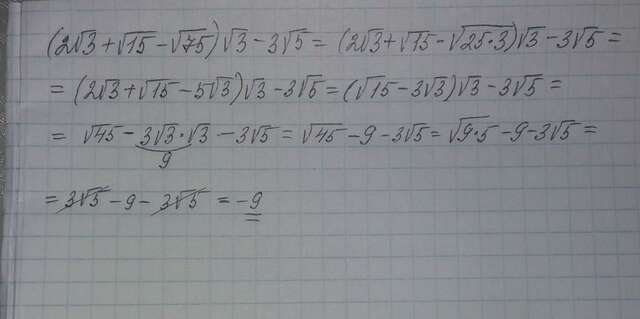 (2√3+√15-√75)√3-3√5 = (2√3+√15-√25·3)√3-3√5 =
= (2√3+√15-5√3)√3-3√5 = (√15-3√3)√3-3√5 =
= √45-3√3·√3-3√5 = √45-9-3√5 = √9·5-9-3√5 =
9
= 3√5-9-3√5 = -9